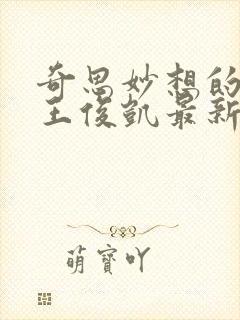 奇思妙想的
王俊凯最新
萌宝吖